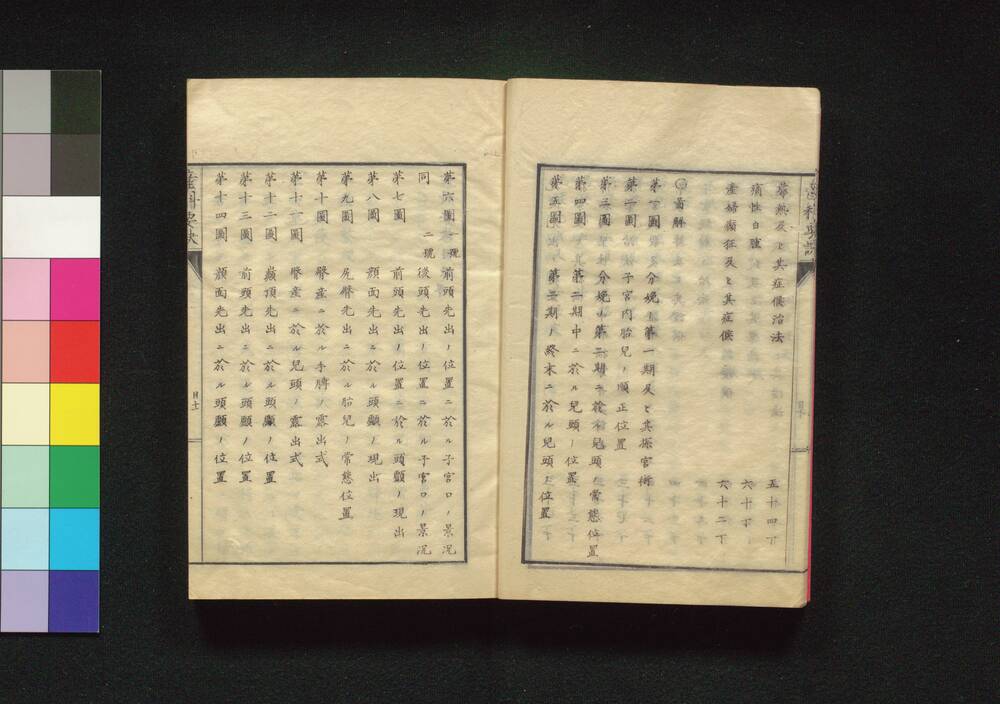 蓐熱及ヒ其症候治法 五十四丁
痛性白腫 六十丁
産婦癲狂及ヒ其症候 六十二丁
○圖解
第一圖 分娩ノ第一期及ヒ其探宮術
第二圖 子宮内胎兒ノ順正位置
第三圖 分娩ノ第二期ニ於ル兒頭ノ常態位置
第四圖 第二期中ニ於ル兒頭ノ位置
第五圖 第二期ノ終末ニ於ル兒頭ノ位置
第六圖 一號 前頭先出ノ位置ニ於ル子宮口ノ景況
同 二號 後頭先出ノ位置ニ於ル子宮口ノ景況
第七圖 前頭先出ノ位置ニ於ル頭顱ノ現出
第八圖 顔面先出ニ於ル頭顱ノ現出
第九圖 尻臀先出ニ於ル胎兒ノ常態位置
第十圖 臀産ニ於ル手臂ノ露出式
第十一圖 臀産ニ於ル兒頭ノ露出式
第十二圖 巓頂先出ニ於ル頭顱ノ位置
第十三圖 前頭先出ニ於ル頭顱ノ位置
第十四圖 顔面先出ニ於ル頭顱ノ位置
産科要訣
目十一